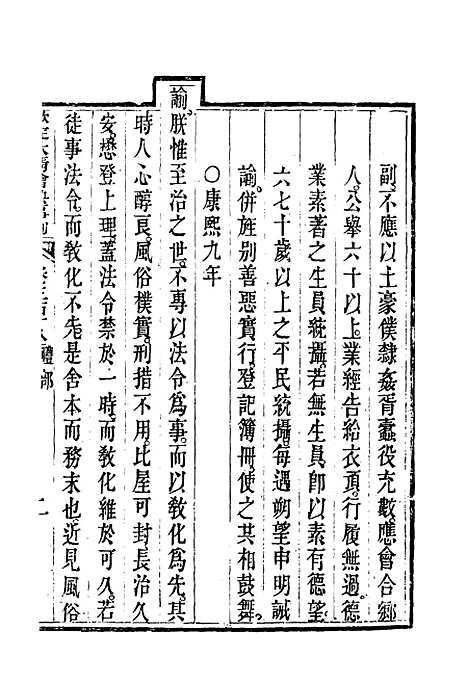 副不應以土豪僕隸姦胥蠹役充數應會合鄉
人公舉六十以上業經告給衣頂行履無過德
業素著之生員統攝若無生員即以素有德望
六七十歲以上之平民統攝每遇朔望申明誡
諭併旌別善惡實行登記簿冊使之其相鼓舞
○康熙九年
諭朕惟至治之世不專以法令為事而以教化為先其
時人心醇良風俗樸實刑措不用比屋可封長治久
安懋登上理蓋法令禁於一時而教化維於可久若
徒事法令而教化不先是舍本而務末也近見風俗
禮部